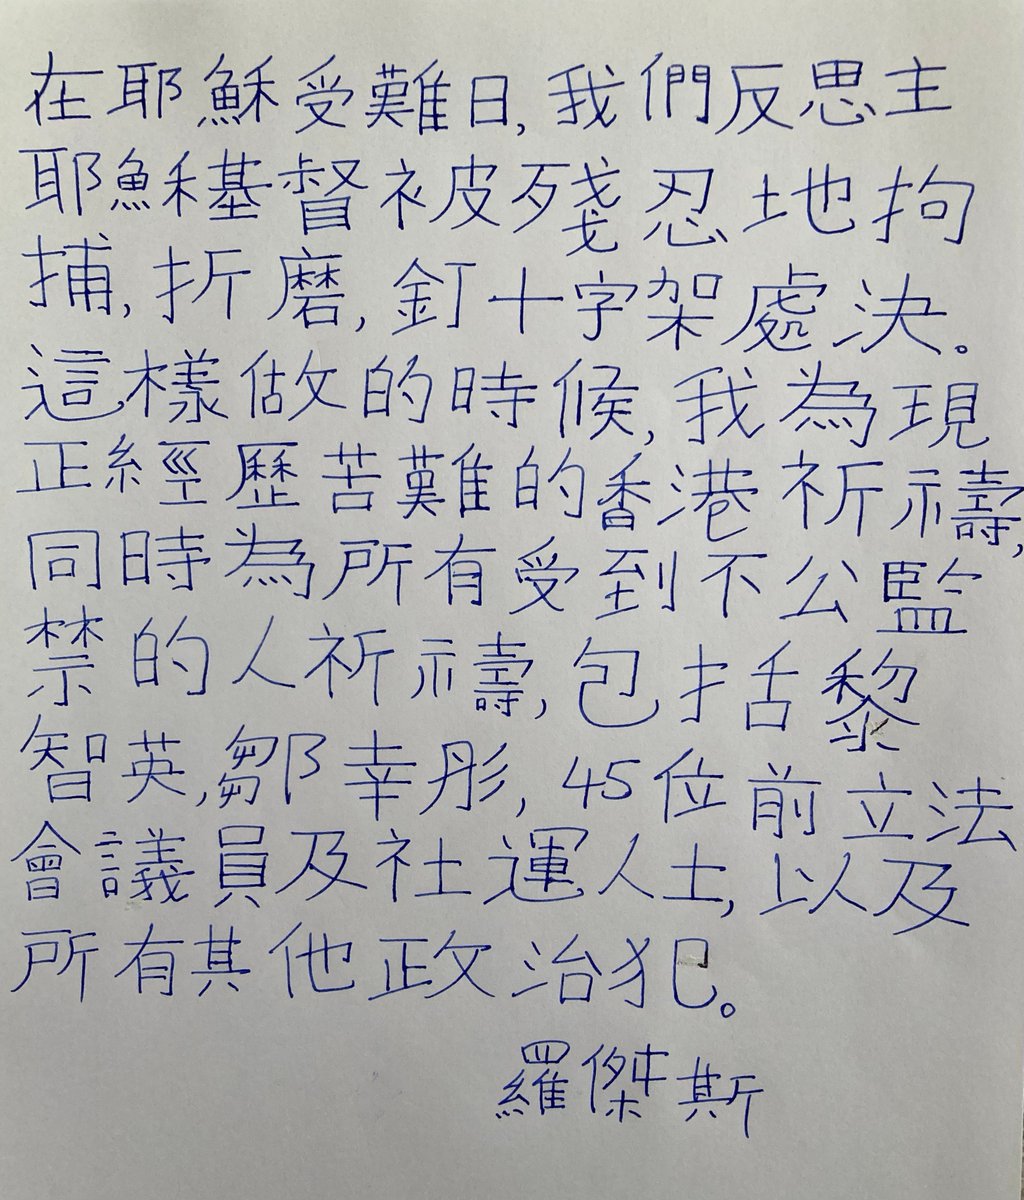 在耶穌受難日,我們反思主
耶穌基督被殘忍地拘
捕,折磨,釘十字架處決。
這樣做的時候,我為現
正經歷苦難的香港祈禱,
同時為所有受到不公監
禁的人祈禱,包括黎
智英,鄒幸彤,45位前立法
會議員及社運人士,以及
所有其他政治犯。
羅傑斯